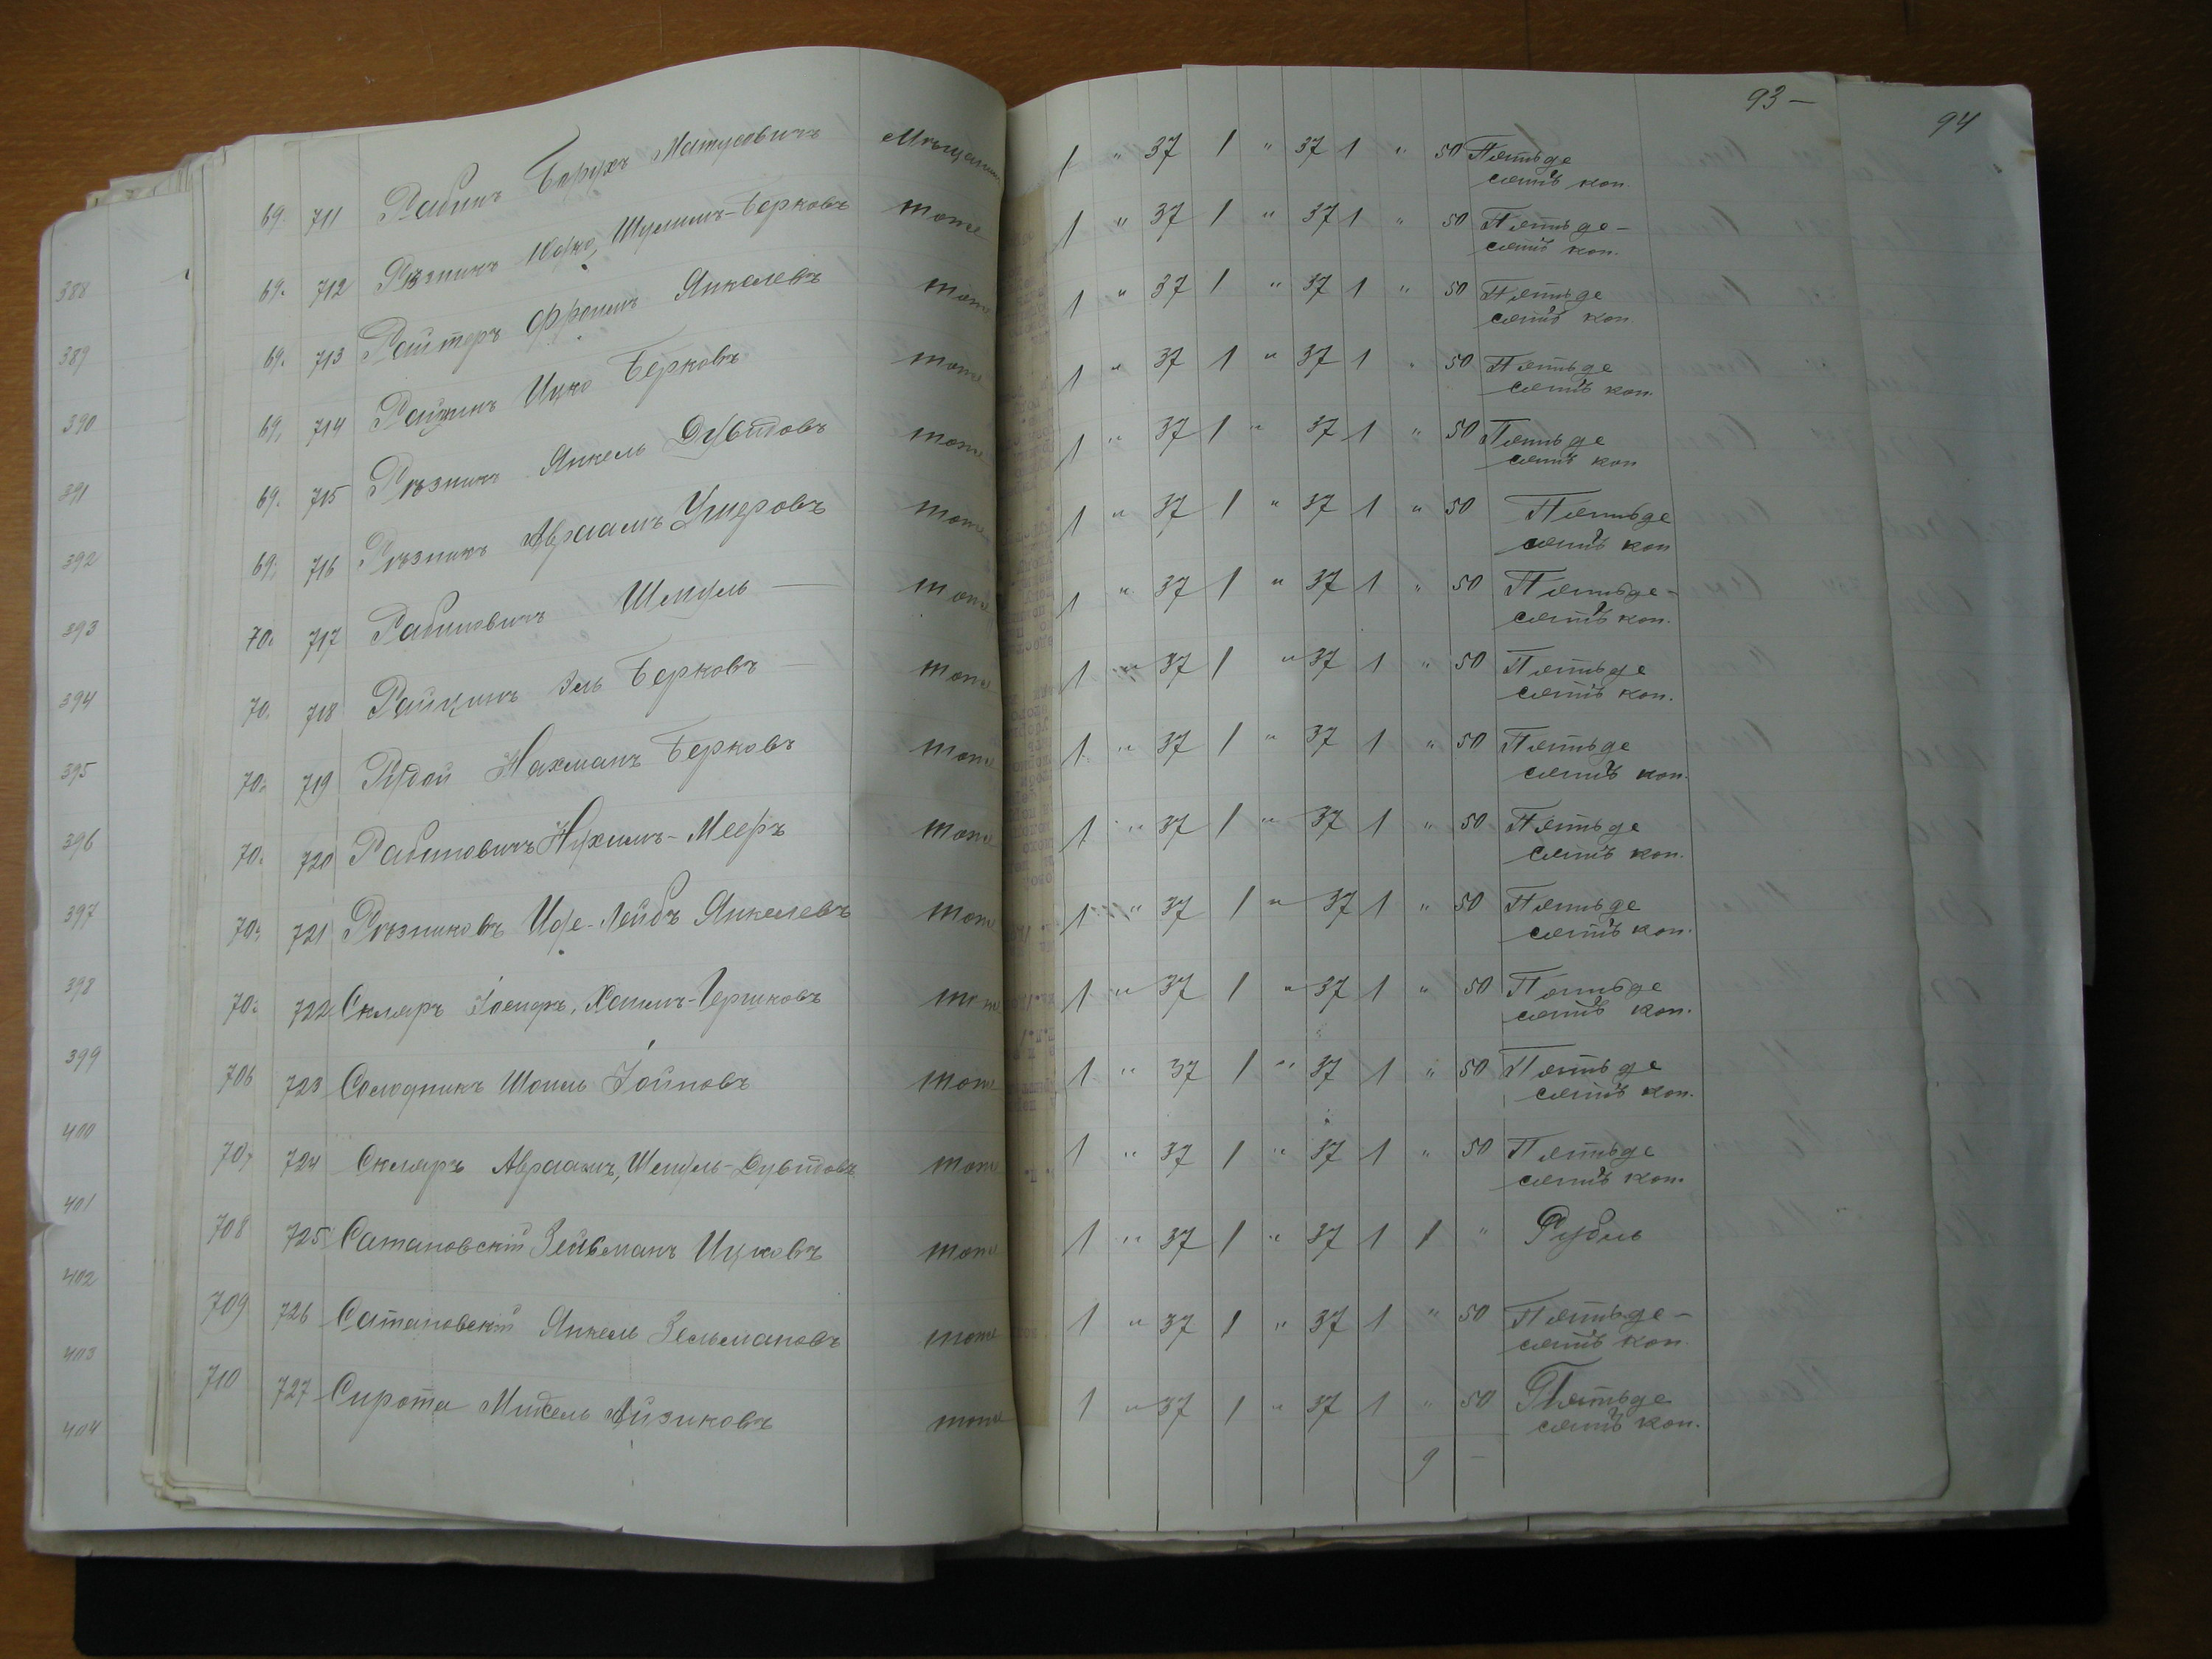 93 —
94
69. 711 Рабинъ Борухъ Матусовичъ Мѣщанинъ 1 " 37 1 " 37 1 " 50 Пятьде
сятъ коп.
69. 712 Рѣзникъ Шулимъ-Берковъ тоже 1 " 37 1 " 37 1 " 50 Пятьде-
сятъ коп.
69. 713 Райтеръ Фроимъ Янкелевъ тоже 1 " 37 1 " 37 1 " 50 Пятьде
сятъ коп.
69. 714 Ицко Берковъ тоже 1 " 37 1 " 37 1 " 50 Пятьде
сятъ коп.
69. 715 Рѣзникъ Янкель Дувидовъ тоже 1 " 37 1 " 37 1 " 50 Пятьде
сятъ коп
69. 716 Рѣзникъ Авраамъ Ушеровъ тоже 1 " 37 1 " 37 1 " 50 Пятьде
сятъ коп
70. 717 Рабиновичъ Шмуль — тоже 1 " 37 1 " 37 1 " 50 Пятьде-
сятъ коп.
70. 718 Райцинъ Эль Берковъ — тоже 1 " 37 1 " 37 1 " 50 Пятьде
сятъ коп.
70. 719 Рудой Нахманъ Берковъ тоже 1 " 37 1 " 37 1 " 50 Пятьде
сятъ коп.
70. 720 Рабиновичъ Нухимъ-Мееръ тоже 1 " 37 1 " 37 1 " 50 Пятьде
сятъ коп.
70. 721 Рѣзниковъ Лейбъ Янкелевъ тоже 1 " 37 1 " 37 1 " 50 Пятьде
сятъ коп.
70. 722 Скляръ Хаимъ-Гершковъ тоже 1 " 37 1 " 37 1 " 50 Пятьде
сятъ коп.
706 723 Солодникъ Шоиль Іойновъ тоже 1 " 37 1 " 37 1 " 50 Пятьде
сятъ коп.
707 724 Скляръ Авраамъ, Шмуль-Дувидовъ тоже 1 " 37 1 " 37 1 " 50 Пятьде
сятъ коп.
708 725 Сатановскій Зейвманъ Ицковъ тоже 1 " 37 1 " 37 1 1 " Рубль
709 726 Сатановскій Янкель Зельмановъ тоже 1 " 37 1 " 37 1 " 50 Пятьде-
сятъ коп.
710 727 Сирота Михель Айзиковъ тоже 1 " 37 1 " 37 1 " 50 Пятьде
сятъ коп.
9 —
388
389
390
391
392
393
394
395
396
397
398
399
400
401
402
403
404